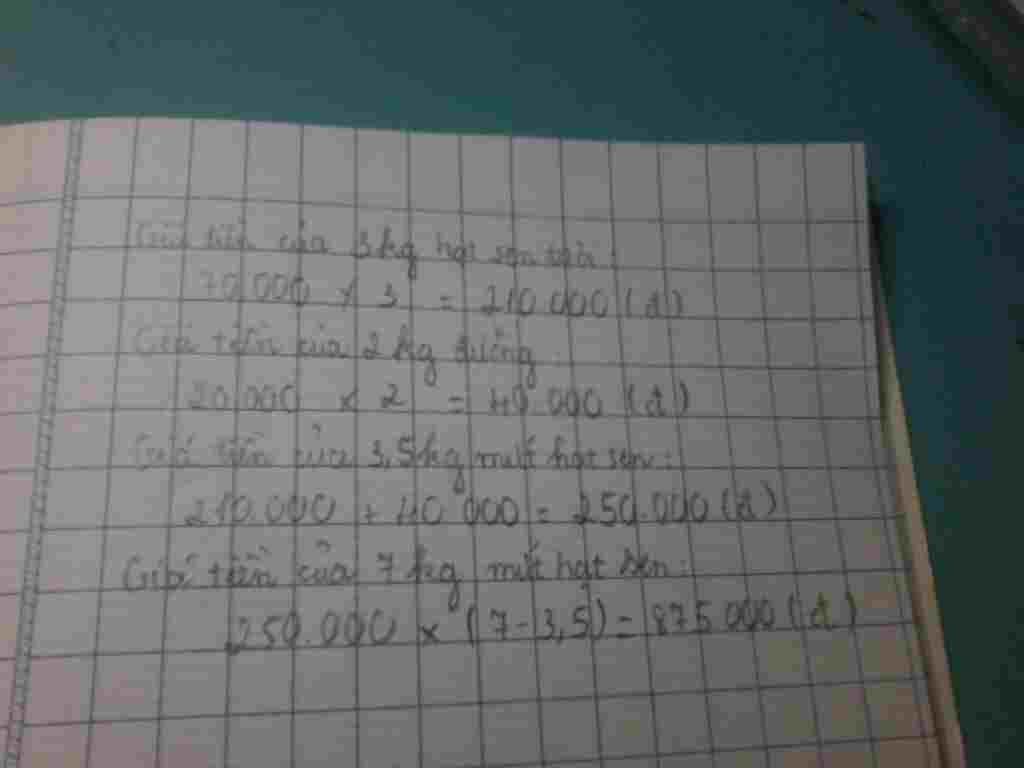 Giá tiền của 3kg hạt sen tươi:
70.000 x 3 = 210.000 (đ)
Giá tiền của 2kg đường:
20.000 x 2 = 40.000 (đ)
Giá tiền của 3,5kg mứt hạt sen:
210.000 + 40.000 = 250.000 (đ)
Giá tiền của 7kg mứt hạt sen:
250.000 x (7-3,5) = 875.000 (đ)